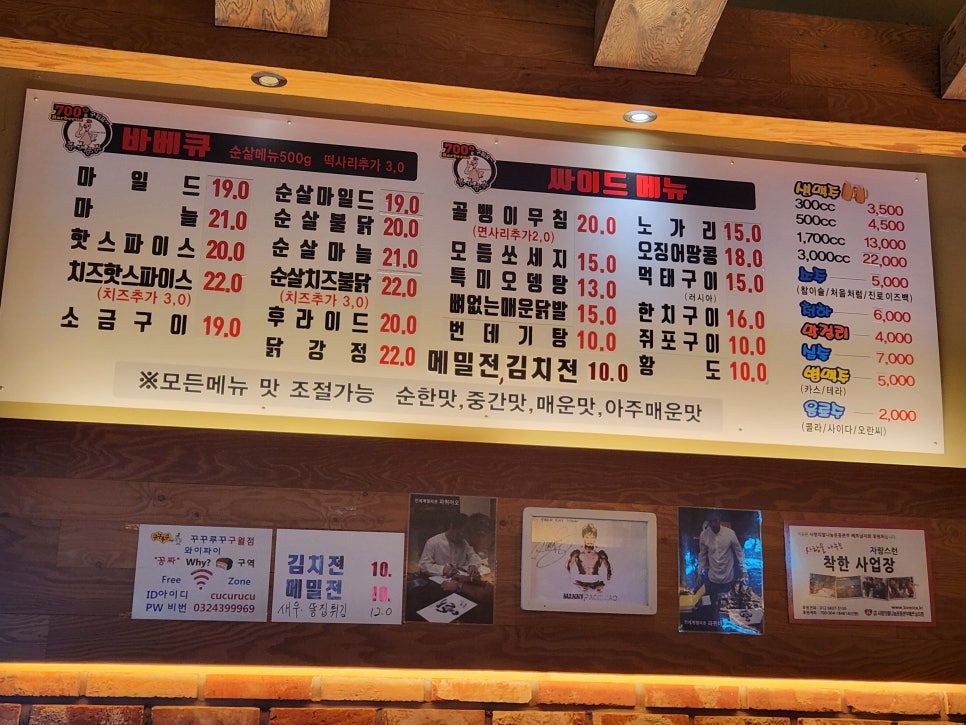 700°
바베큐 순살메뉴500g 떡사리추가 3,0
마일드 19.0
마늘 21.0
핫스파이스 20.0
치즈핫스파이스 22.0
(치즈추가 3,0)
소금구이 19.0
순살마일드 19.0
순살불닭 20.0
순살마늘 21.0
순살치즈불닭 22.0
(치즈추가 3,0)
후라이드 20.0
닭강정 22.0
700°
싸이드 메뉴
골뱅이무침 20.0
(면사리추가2,0)
모듬쏘세지 15.0
특미오뎅탕 13.0
뼈없는매운닭발 15.0
번데기탕 10.0
메밀전,김치전 10.0
노가리 15.0
오징어땅콩 18.0
먹태구이 15.0
(러시아)
한치구이 16.0
쥐포구이 10.0
황도 10.0
※모든메뉴 맛 조절가능 순한맛,중간맛,매운맛,아주매운맛
생맥주
300cc 3,500
500cc 4,500
1,700cc 13,000
3,000cc 22,000
소주 5,000
(참이슬/처음처럼/진로이즈백)
청하 6,000
막걸리 4,000
7,000
병맥주 5,000
(카스/테라)
음료수 2,000
(콜라/사이다/오란씨)
꾸꾸루꾸구월점
와이파이
"꽁짜" Why? 구역
Free Zone
ID아이디 cucurucu
PW 비번 0324399969
김치전 10.
메밀전 10.
새우, 똥집튀김 12.0
자랑스런
착한 사업장